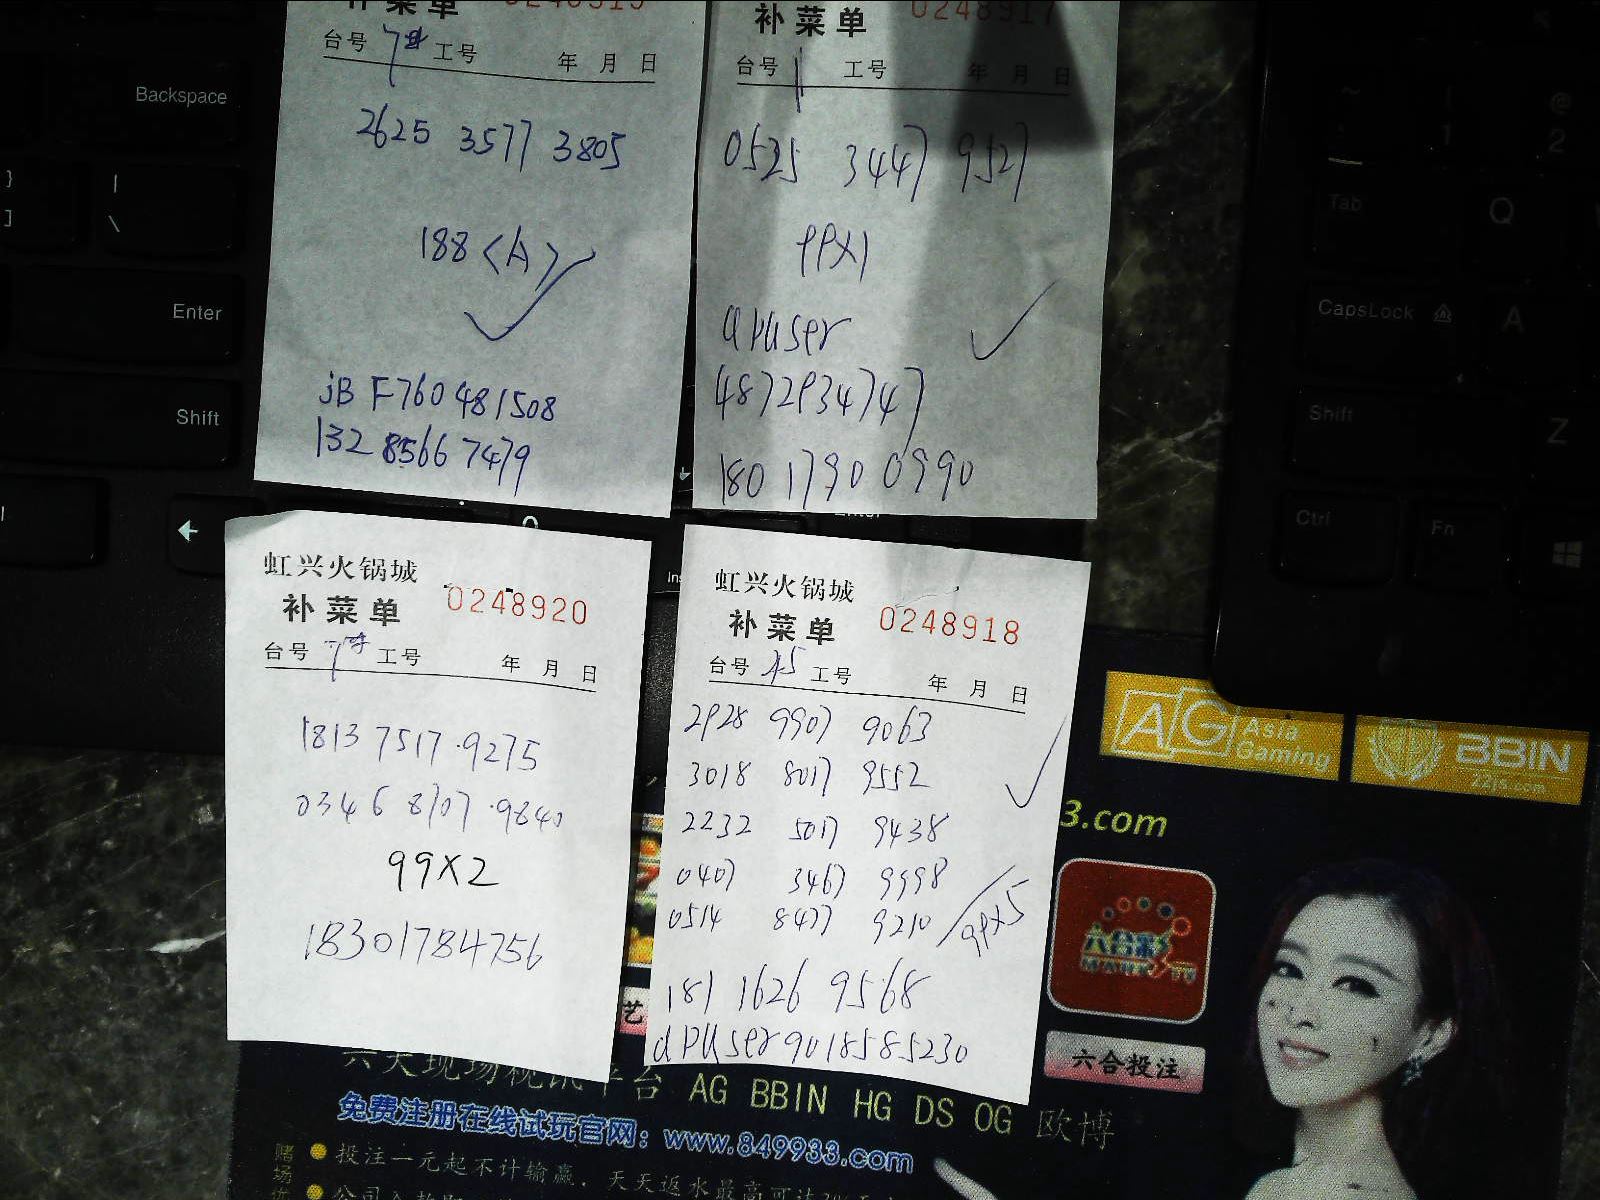 Backspace
Enter
Shift
补菜单
台号 工号 年 月 日
2625 3577 3805
188 <A>
jB F760481508
132 8566 7479
补菜单 0248917
台号 1 工号 年 月 日
0525 3447 9527
PPX1
apuser
4872934747
180 1790 0990
虹兴火锅城
补菜单 0248920
台号 工号 年 月 日
1813 7517 · 9275
0346 8707 · 9840
99X2
18301784756
虹兴火锅城
补菜单 0248918
台号 工号 年 月 日
2928 9907 9063
3018 8017 9552
2232 5017 9438
0407 3467 9998
0514 8477 9210
99X5
181 1626 9568
apuser9018585230
Tab
Q
CapsLock
A
Shift
Z
Ctrl
Fn
AG Asia Gaming
BBIN
3.com
六合彩
六合投注
艺
AG BBIN HG DS OG 欧博
免费注册在线试玩官网：www.849933.com
投注一元起不计输赢，天天返水最高可达